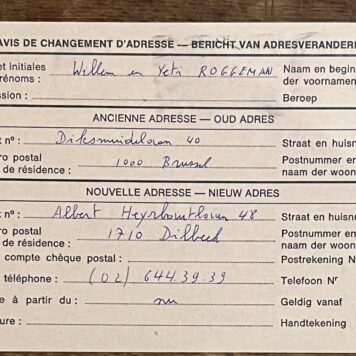 AVIS DE CHANGEMENT D'ADRESSE — BERICHT VAN ADRESVERANDER
et initiales Willem en Yeti ROGGEMAN Naam en begin
rénoms : der voornamen
ssion : Beroep
ANCIENNE ADRESSE — OUD ADRES
t n° : Diksmuidelaan 40 Straat en huisnu
ro postal Postnummer en
de résidence : 1000 Brussel naam der woon
NOUVELLE ADRESSE — NIEUW ADRES
t n° : Albert Heyrbautlaan 48 Straat en huisnu
ro postal Postnummer en
de résidence : 1710 Dilbeek naam der woon
compte chèque postal : Postrekening N
téléphone : (02) 644.39.39 Telefoon N°
e à partir du : nu Geldig vanaf
ure : Handtekening